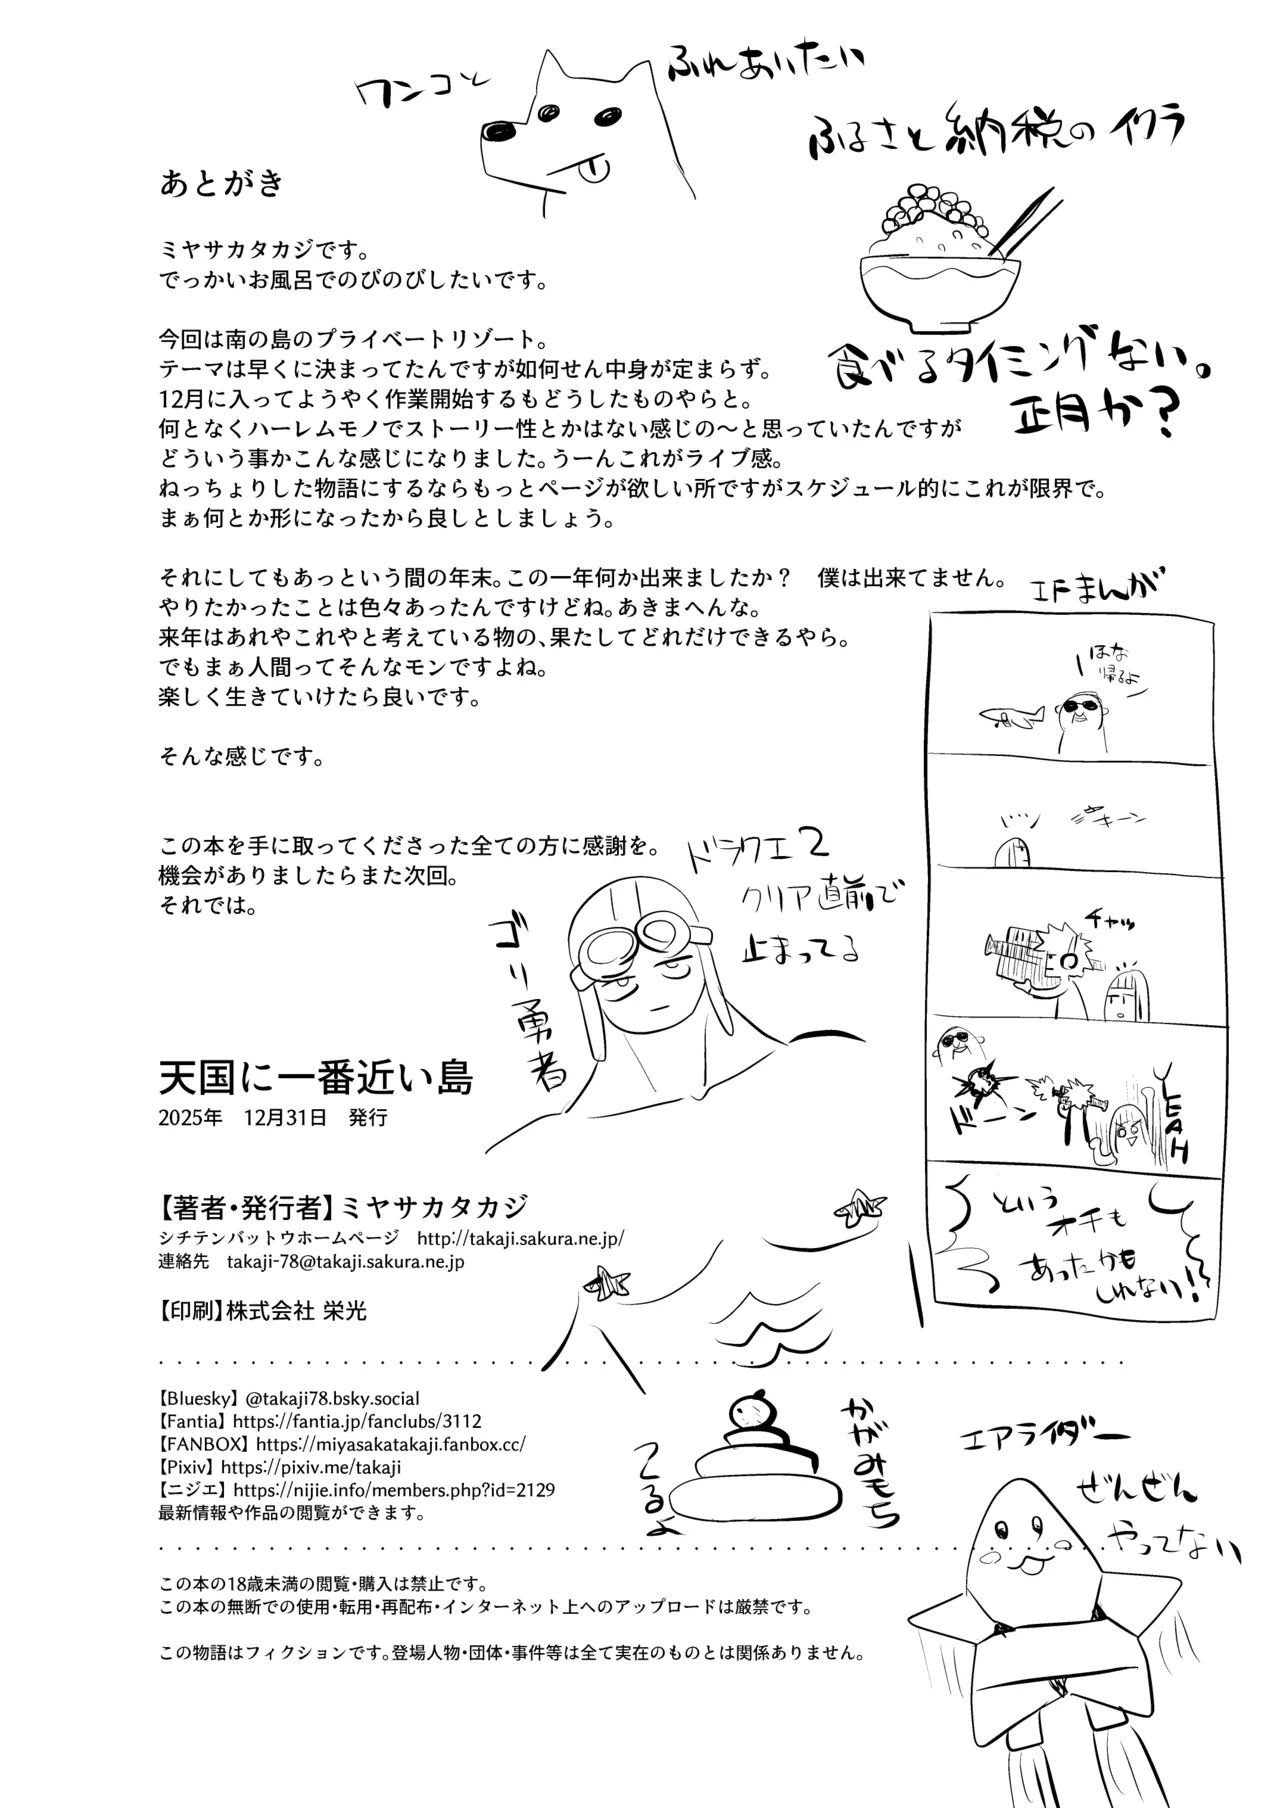 ワンコと
ふれあいたい
ふるさと納税のイクラ
食べるタイミングない。
正月か?
あとがき
ミヤサカタカジです。
でっかいお風呂でのびのびしたいです。
今回は南の島のプライベートリゾート。
テーマは早くに決まってたんですが如何せん中身が定まらず。
12月に入ってようやく作業開始するもどうしたものやらと。
何となくハーレムモノでストーリー性とかはない感じの〜と思っていたんですが
どういう事かこんな感じになりました。うーんこれがライブ感。
ねっちょりした物語にするならもっとページが欲しい所ですがスケジュール的にこれが限界で。
まぁ何とか形になったから良しとしましょう。
それにしてもあっという間の年末。この一年何か出来ましたか?　僕は出来てません。
やりたかったことは色々あったんですけどね。あきまへんな。
来年はあれやこれやと考えている物の、果たしてどれだけできるやら。
でもまぁ人間ってそんなモンですよね。
楽しく生きていけたら良いです。
そんな感じです。
この本を手に取ってくださった全ての方に感謝を。
機会がありましたらまた次回。
それでは。
IFまんが
ほな
帰るよ
キーン
チャッ
YEAH
ドーン
という
オチも
あったかも
しれない!
ドラクエ2
クリア直前で
止まってる
ゴリ勇者
天国に一番近い島
2025年　12月31日　発行
【著者・発行者】ミヤサカタカジ
シチテンバットウホームページ　http://takaji.sakura.ne.jp/
連絡先　takaji-78@takaji.sakura.ne.jp
【印刷】株式会社 栄光
【Bluesky】 @takaji78.bsky.social
【Fantia】 https://fantia.jp/fanclubs/3112
【FANBOX】 https://miyasakatakaji.fanbox.cc/
【Pixiv】 https://pixiv.me/takaji
【ニジエ】 https://nijie.info/members.php?id=2129
最新情報や作品の閲覧ができます。
かがみもち
くるよ
エアライダー
ぜんぜん
やってない
この本の18歳未満の閲覧・購入は禁止です。
この本の無断での使用・転用・再配布・インターネット上へのアップロードは厳禁です。
この物語はフィクションです。登場人物・団体・事件等は全て実在のものとは関係ありません。